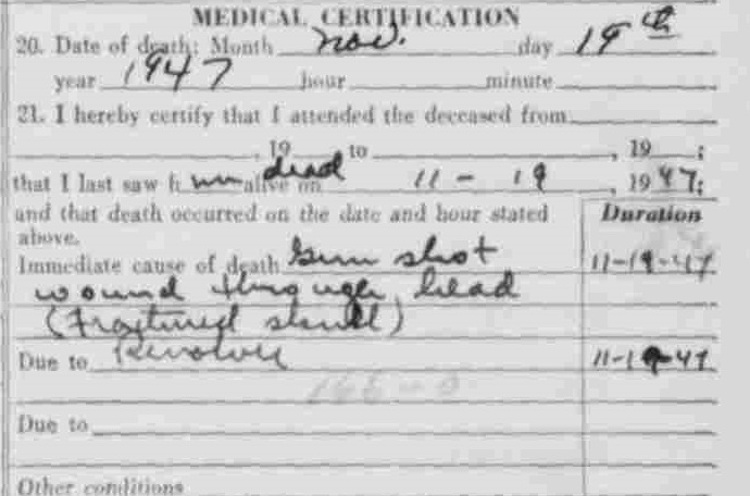 MEDICAL CERTIFICATION
20. Date of death: Month Nov. day 19th
year 1947 hour minute
21. I hereby certify that I attended the deceased from
, 19 to , 19 ;
that I last saw him alive on dead 11 - 19 , 1947;
and that death occurred on the date and hour stated above. Duration
Immediate cause of death Gun shot 11-19-47
wound through head
(Fractured skull)
Due to Revolver 11-19-47
166-0
Due to
Other conditions